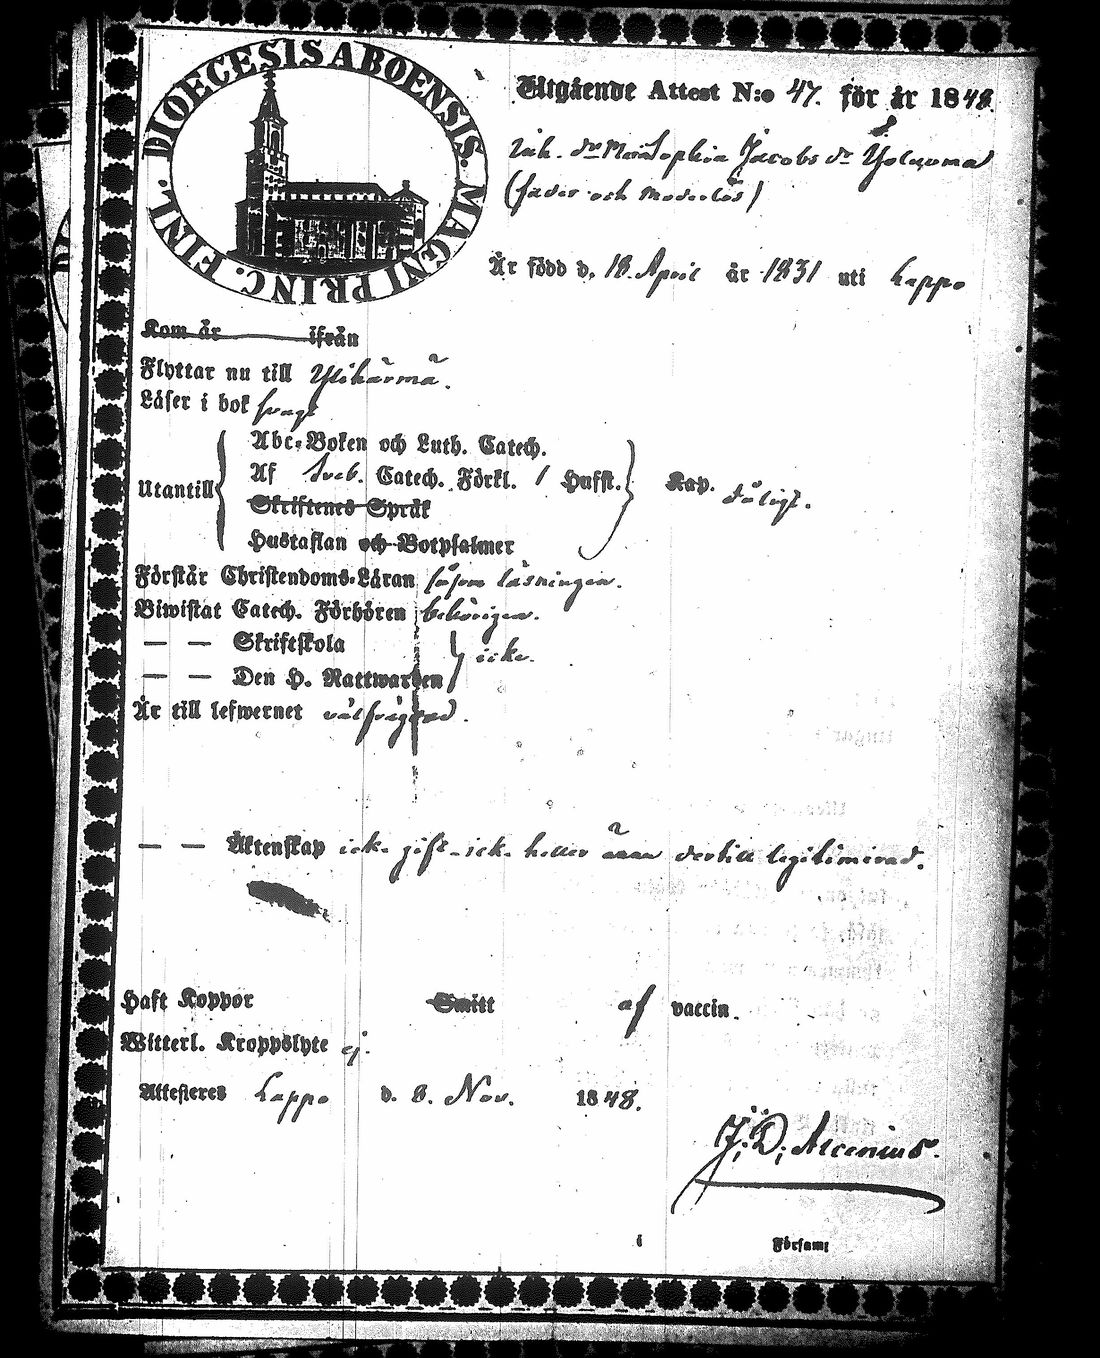 DIOECESIS ABOENSIS. MAGNI PRINC. FINL.
Utgående Attest N:o 47. för år 1848.
Jacobs dr
(fader och moderlös)
Är född d. 18. April år 1831 uti Lappo
Kom år ifrån
Flyttar nu till Ylihärmä.
Läser i bok svagt
Utantill
Abc-Boken och Luth. Catech.
Af Sveb. Catech. Förkl. 1 Hufst. Kap. dåligt.
Skriftenes Språk
Hustaflan och Botpsalmer
Förstår Christendoms-Läran såsom läsningen.
Biwistat Catech. Förhören behörigen.
— — Skriftskola
icke.
— — Den H. Nattwarden
Är till lefwernet välfrägdad.
— — Äktenskap icke gift - icke heller ännu dertill legitimerad.
Haft Koppor Smitt af vaccin.
Witterl. Kroppslyte ej.
Attesteres Lappo d. 8. Nov. 1848.
J. D. Alcenius.
i Församl